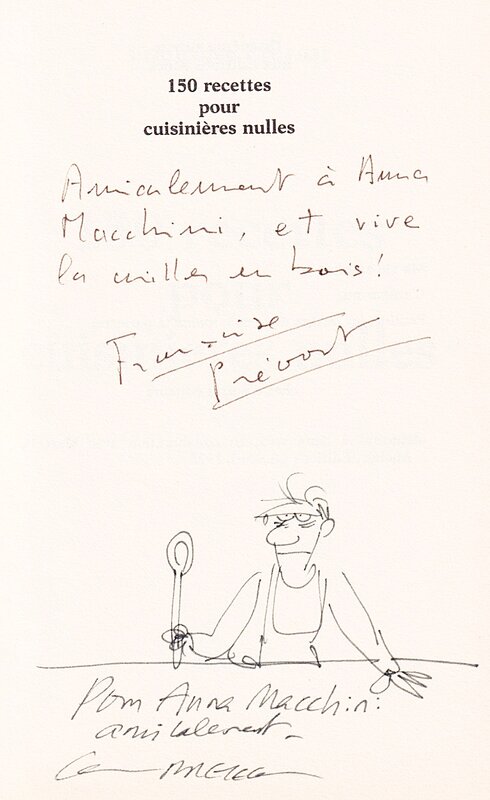 150 recettes
pour
cuisinières nulles
Amicalement à Anna
Macchini, et vive
la cuiller en bois!
Françoise
Prévost
Pour Anna Macchini
amicalement.